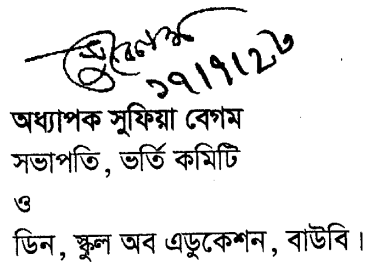 ১৭/৭/২৩
অধ্যাপক সুফিয়া বেগম
সভাপতি, ভর্তি কমিটি
ও
ডিন, স্কুল অব এডুকেশন, বাউবি।